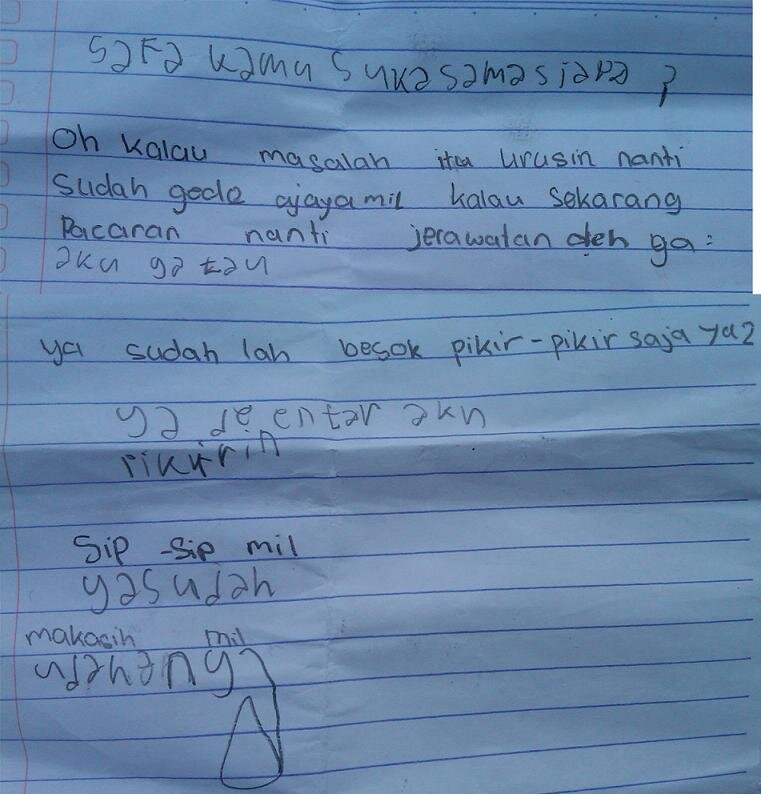 Safa kamu suka sama siapa ?
Oh kalau masalah itu urusin nanti
Sudah gede aja ya mil kalau Sekarang
Pacaran nanti jerawatan deh ga :
aku ga tau
ya sudah lah besok pikir-pikir saja ya?
ya de entar aku
pikirin
Sip -Sip mil
yasudah
makasih mil